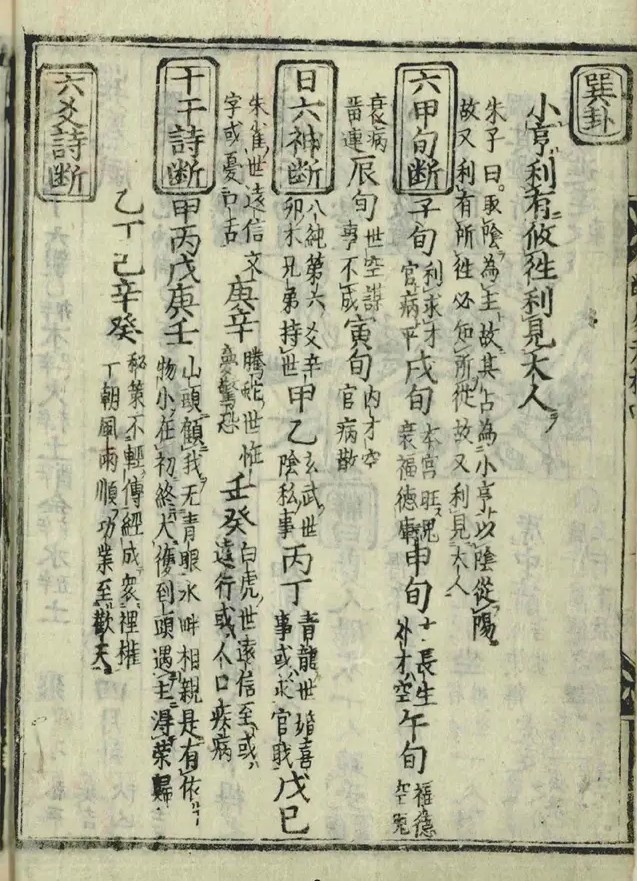 巽卦
小亨利有攸往利見大人
朱子曰取陰為主故其占為小亨以陰從陽
故又利有所往必知所從故又利見大人
六甲旬断 子旬 利求才官病平 戌旬 本宮旺鬼衰福德庫 申旬 土長生外才空 午旬 福德空鬼
衰病畨連 辰旬 世空謀事不成 寅旬 内才空官病散
日六神断 八純第六爻辛卯木兄弟持世 甲乙 玄武世陰私事 丙丁 青龍世婚喜事或求官職 戊已
朱雀世遠信文字或憂口舌 庚辛 騰蛇世怪夢驚恐 壬癸 白虎世遠信至或遠行或人口疾病
十干詩断 甲丙戊庚壬 山頭顧我无青眼水畔相親是有依物小在初終大獲到頭遇主得榮歸
乙丁己辛癸 秘策不輕傳經成裡推丁朝風雨順功業至歡天
六爻詩断